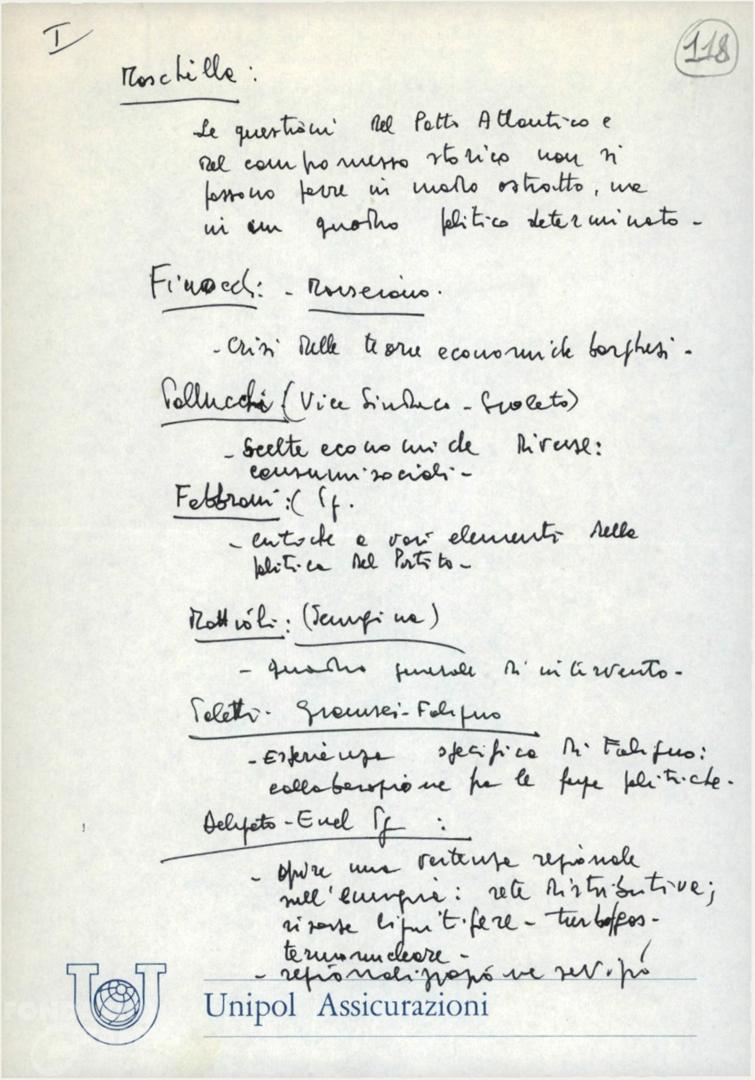 I
118
Moschella:
Le questioni del Patto Atlantico e
del compromesso storico non si
possono porre in modo astratto, ma
in un quadro politico determinato -
Finocchi: - Marsciano.
- Crisi delle teorie economiche borghesi -
Pallucchi (Vice Sindaco - Spoleto)
- Scelte economiche diverse:
consumi sociali -
Fabbroni: ( Pg.
- entoche a vari elementi della
politica del Partito -
Mattioli: (Sangina)
- quadro generale di intervento -
Poletti - Gramsci - Foligno
- Esperienza specifica di Foligno:
collaborazione fra le forze politiche -
Delegato - Enel Pg :
- aprire una vertenza regionale
sull'energia: rete distributiva;
risorse lignitifere - turbogas -
termonucleare -
- regionalizzazione servizi
Unipol Assicurazioni